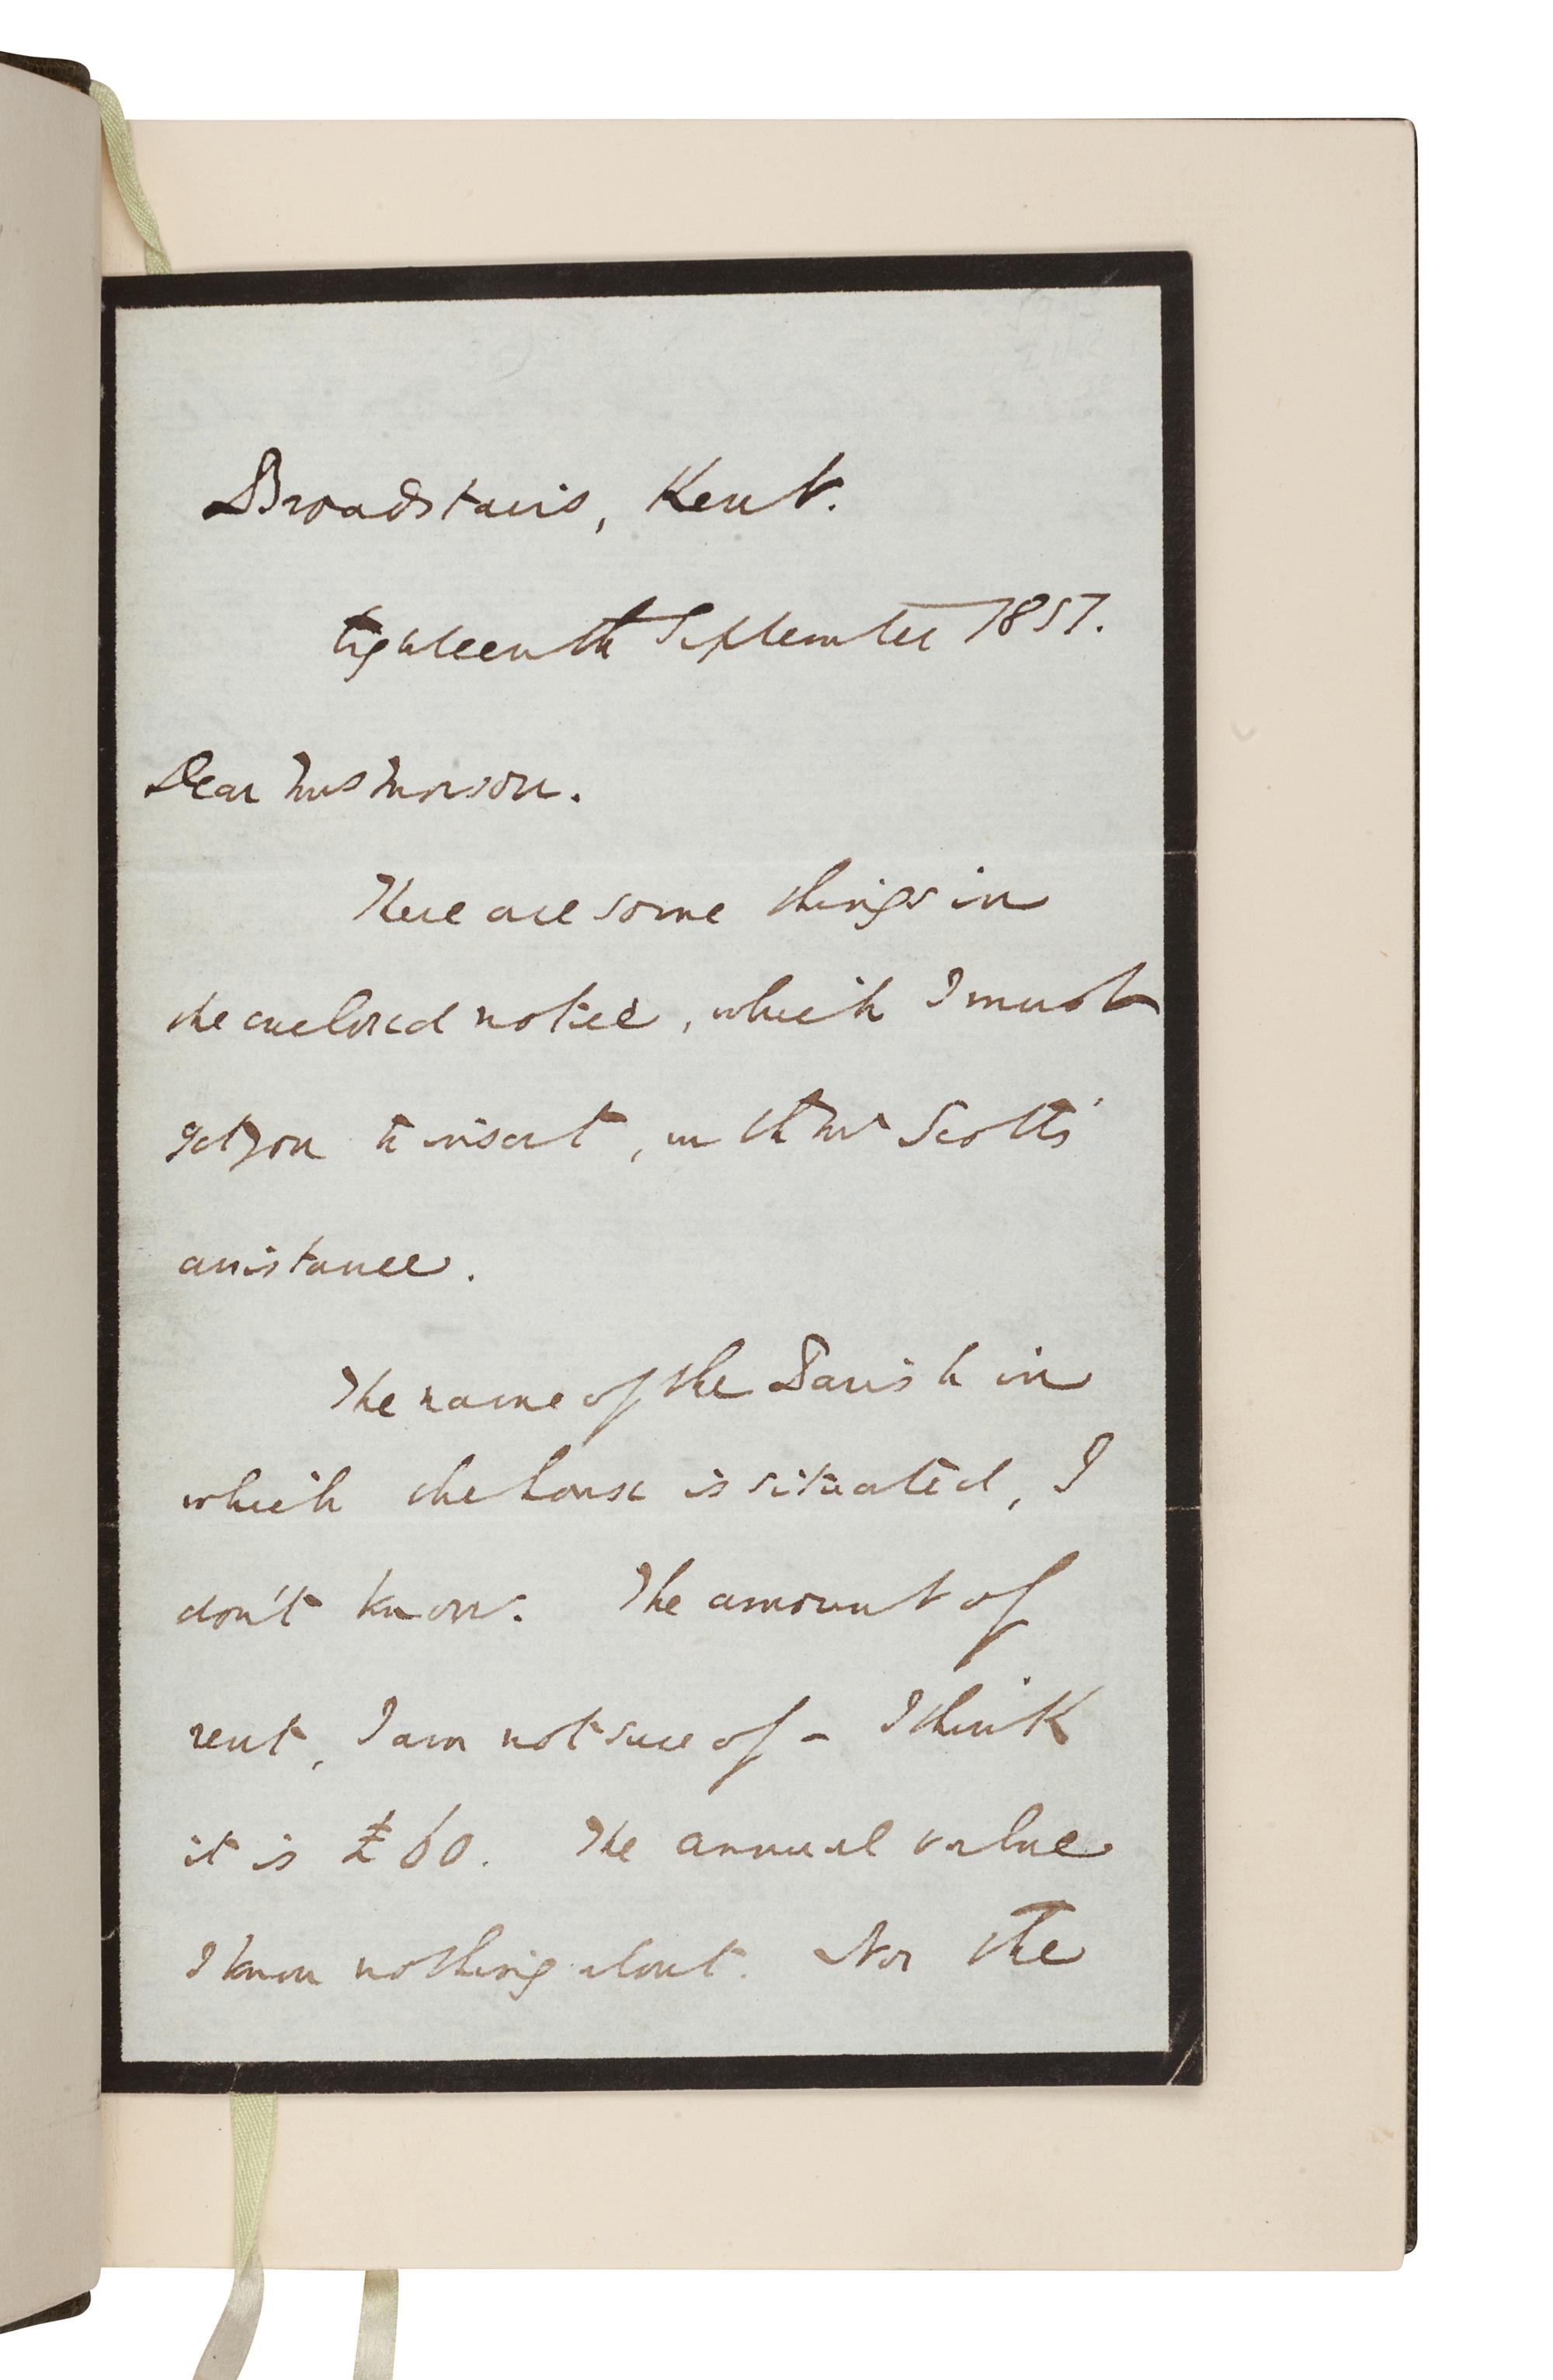 Broadstairs, Kent.
Eighteenth September 1851.
Dear Mrs Morson.
There are some things in
the enclosed notice, which I must
get you to insert, with Mr Scott's
assistance.
The name of the Parish in
which the house is situated, I
don't know. The amount of
rent, I am not sure of - I think
it is £60. The annual value
I know nothing about. Nor the